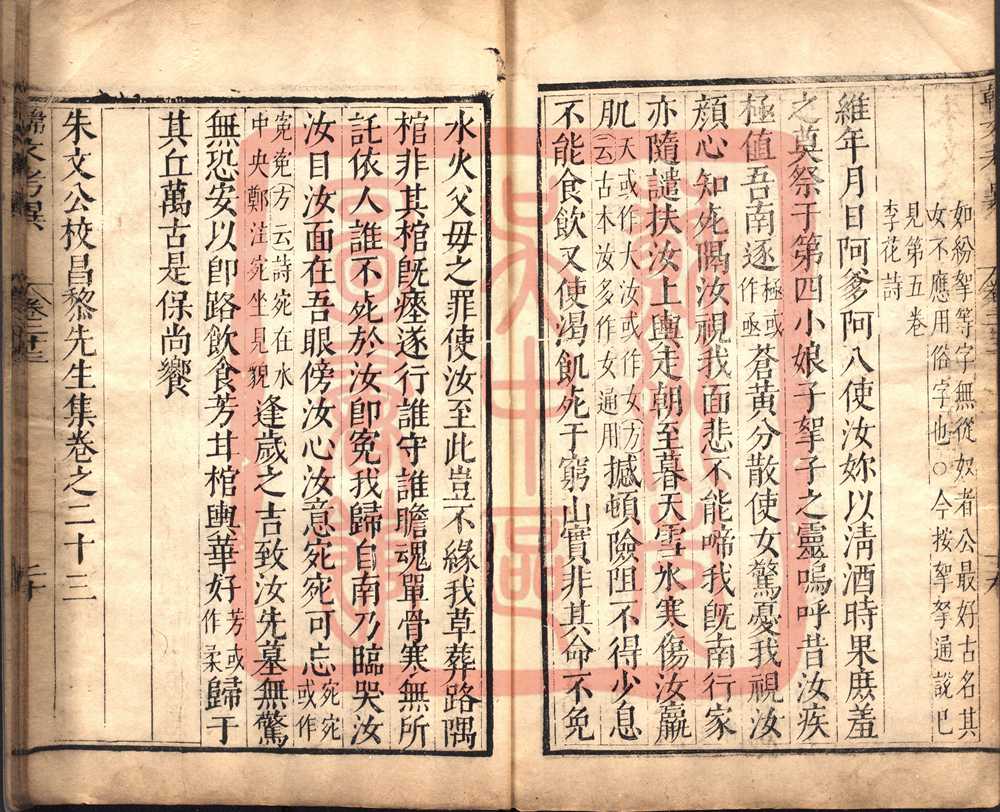 如紛拏等字無從奴者公最好古名其
女不應用俗字也○今按拏孥通說已
見第五卷
李花詩
維年月日阿爹阿八使汝妳以淸酒時果庶羞
之奠祭于第四小娘子挐子之靈嗚呼昔汝疾
極值吾南逐極或作亟蒼黃分散使女驚憂我視汝
顔心知死隔汝視我面悲不能啼我旣南行家
亦隨譴扶汝上輿走朝至暮天雪氷寒傷汝羸
肌天或作大汝或作女(方)(云)古本汝多作女通用撼頓險阻不得少息
不能食飮又使渴飢死于窮山實非其命不免
水火父母之罪使汝至此豈不緣我草葬路隅
棺非其棺旣瘞遂行誰守誰瞻魂單骨寒無所
託依人誰不死於汝卽寃我歸自南乃臨哭汝
汝目汝面在吾眼傍汝心汝意宛宛可忘宛宛或作
寃寃(方)云詩宛在水中央鄭注宛坐見貌逢歲之吉致汝先墓無驚
無恐安以卽路飮食芳甘棺輿華好芳或作柔歸于
其丘萬古是保尚饗
朱文公校昌黎先生集卷之二十三
韓文考異
卷二十三
二十